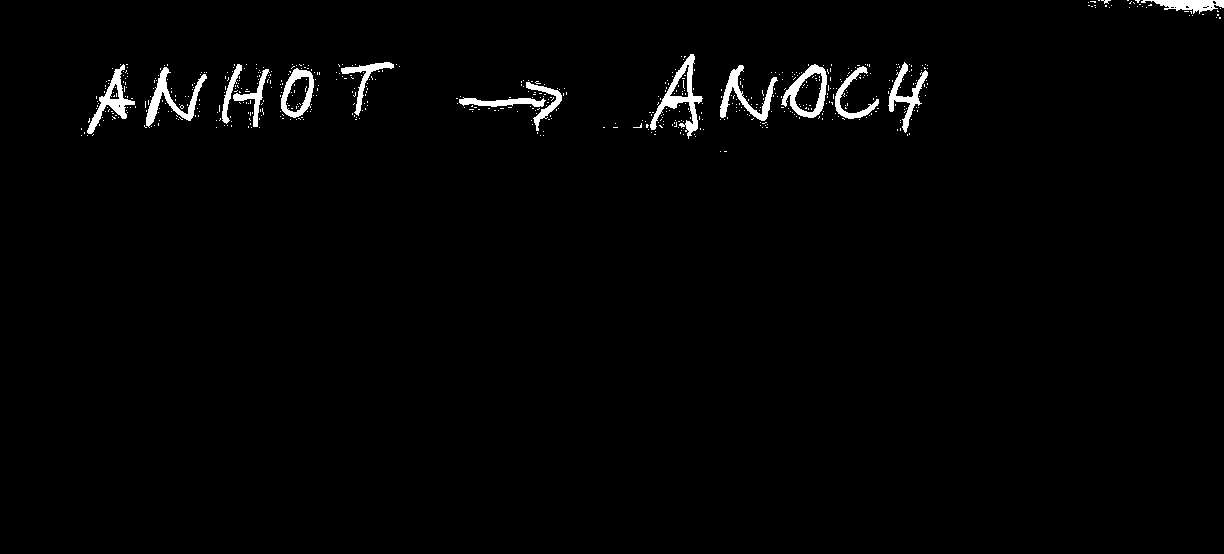 ANHOT → ANOCH